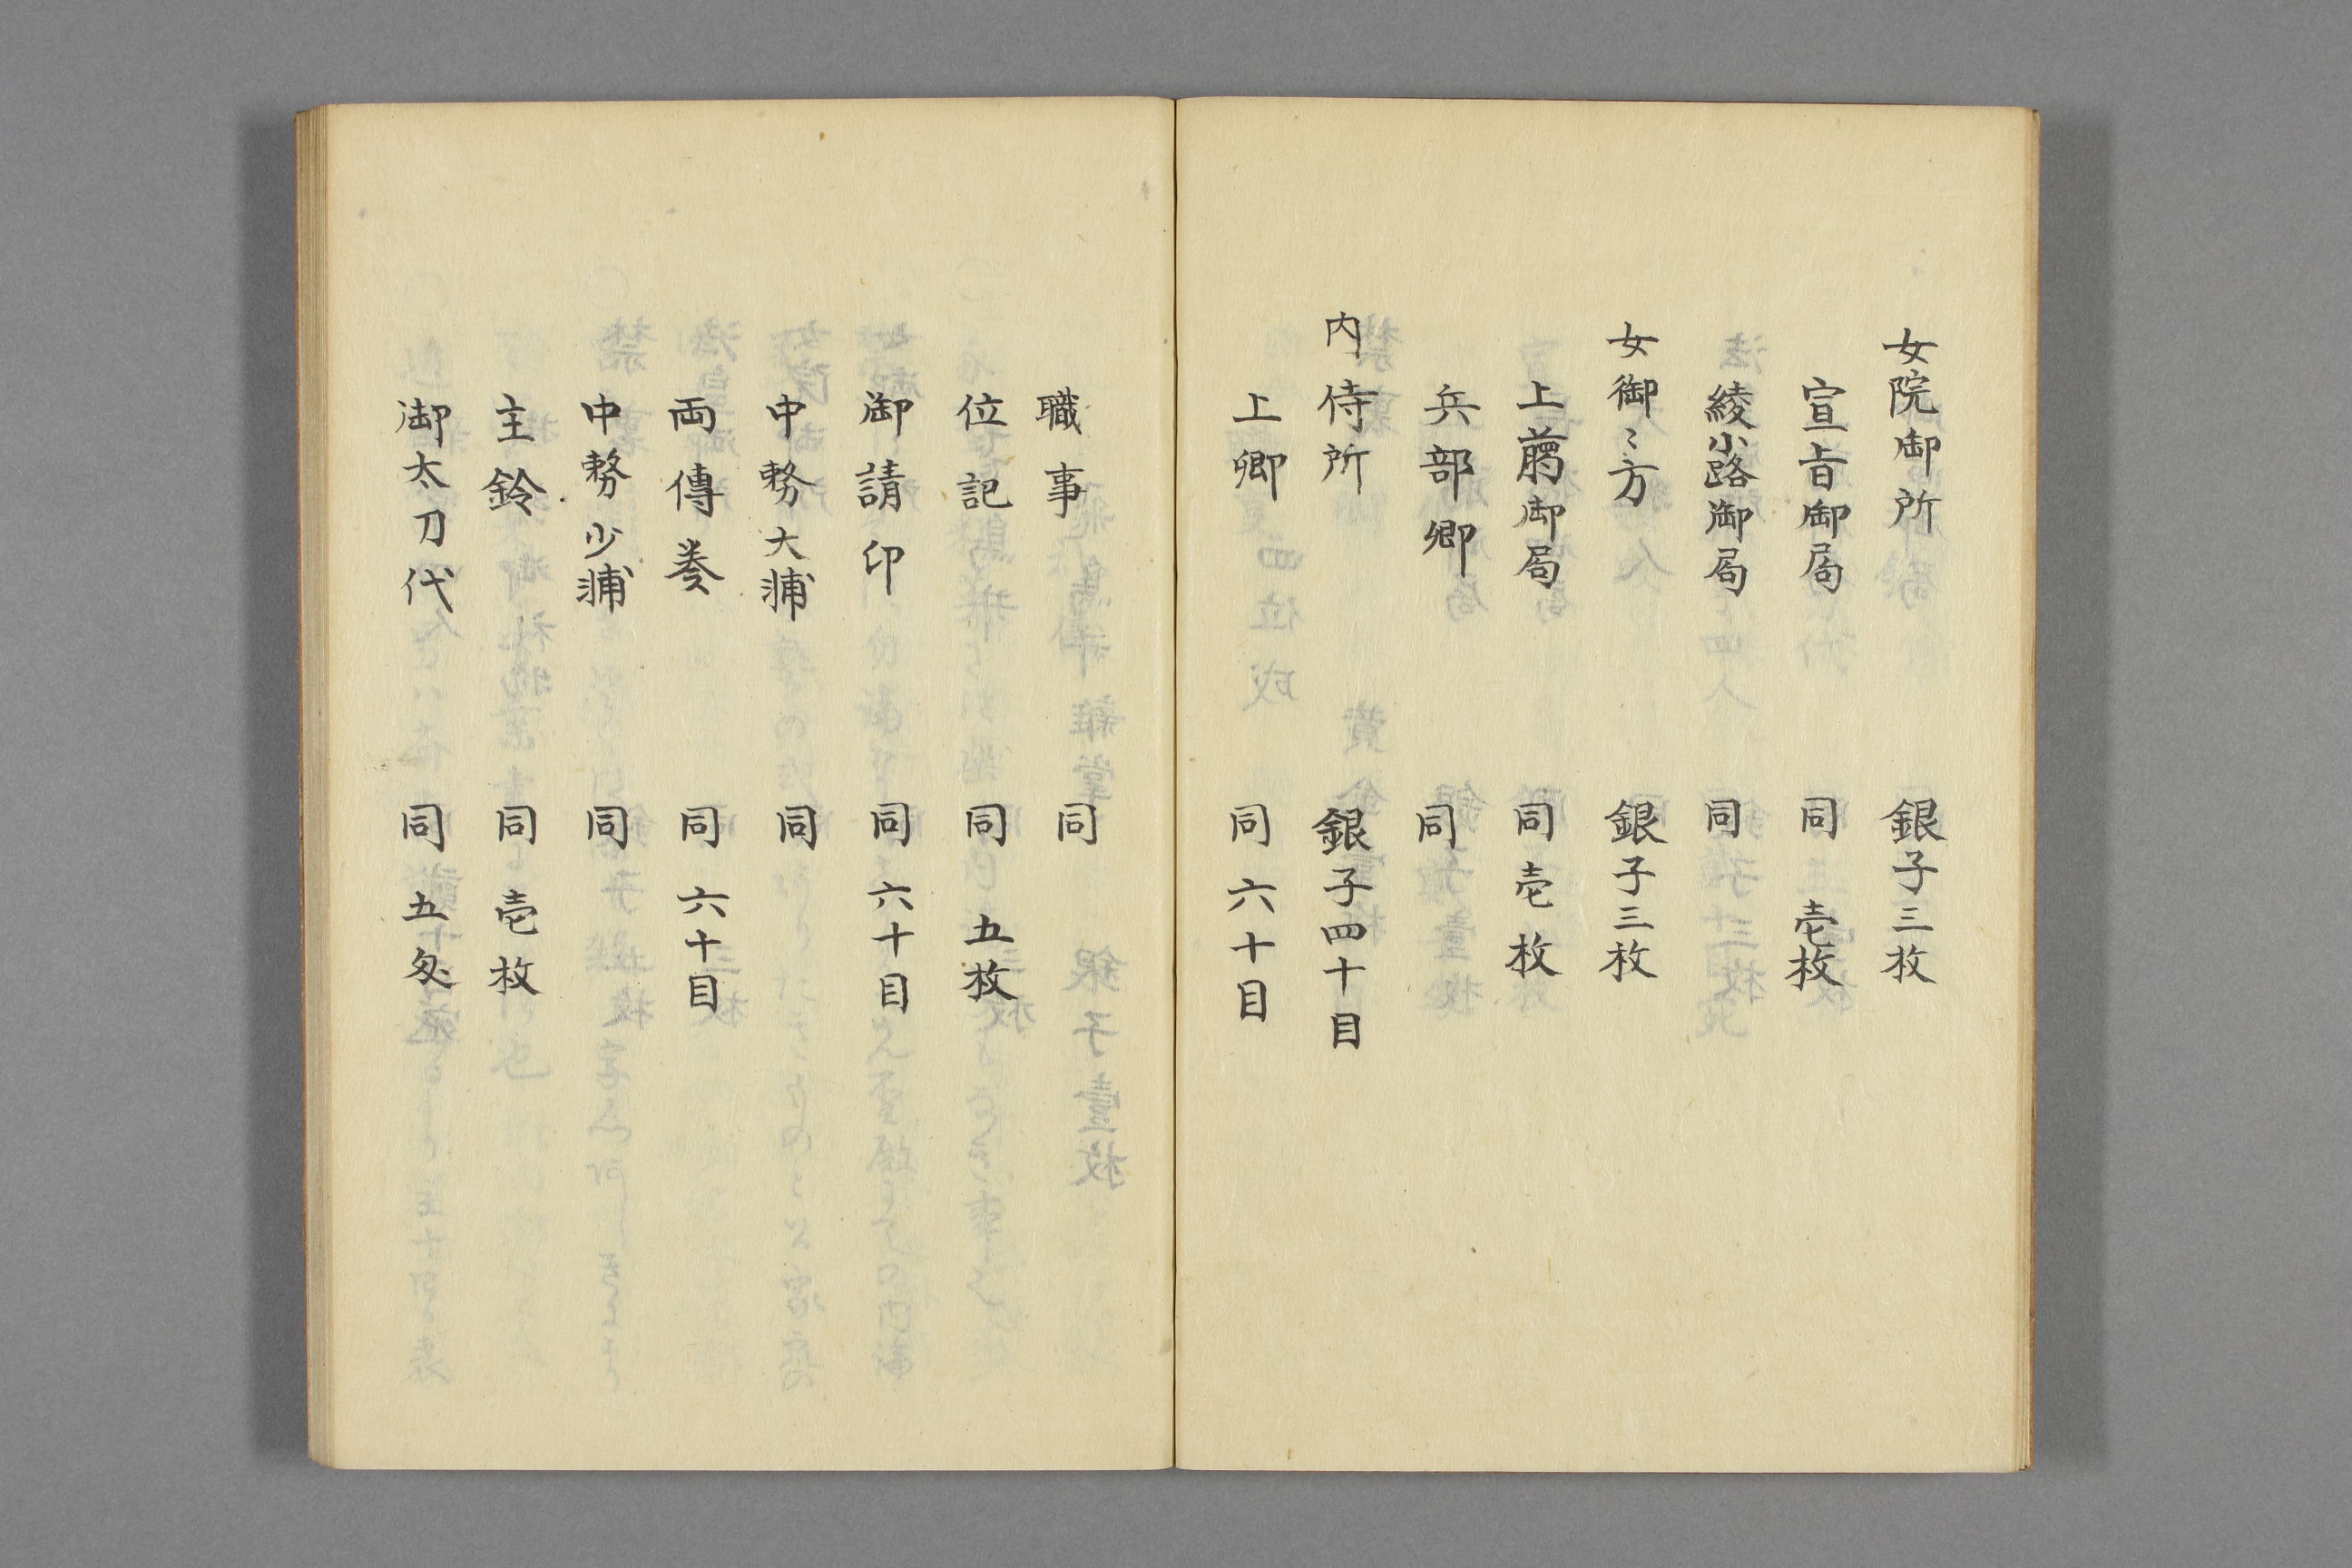 女院御所 銀子三枚
宣旨御局 同 壱枚
綾小路御局 同
女御〻方 銀子三枚
上﨟御局 同 壱枚
兵部卿 同
内侍所 銀子四十目
上卿 同 六十目
職事 同
位記 同 五枚
御請印 同 六十目
中務大輔 同
両傳奏 同 六十目
中務少輔 同
主鈴 同 壱枚
御太刀代 同 五匁